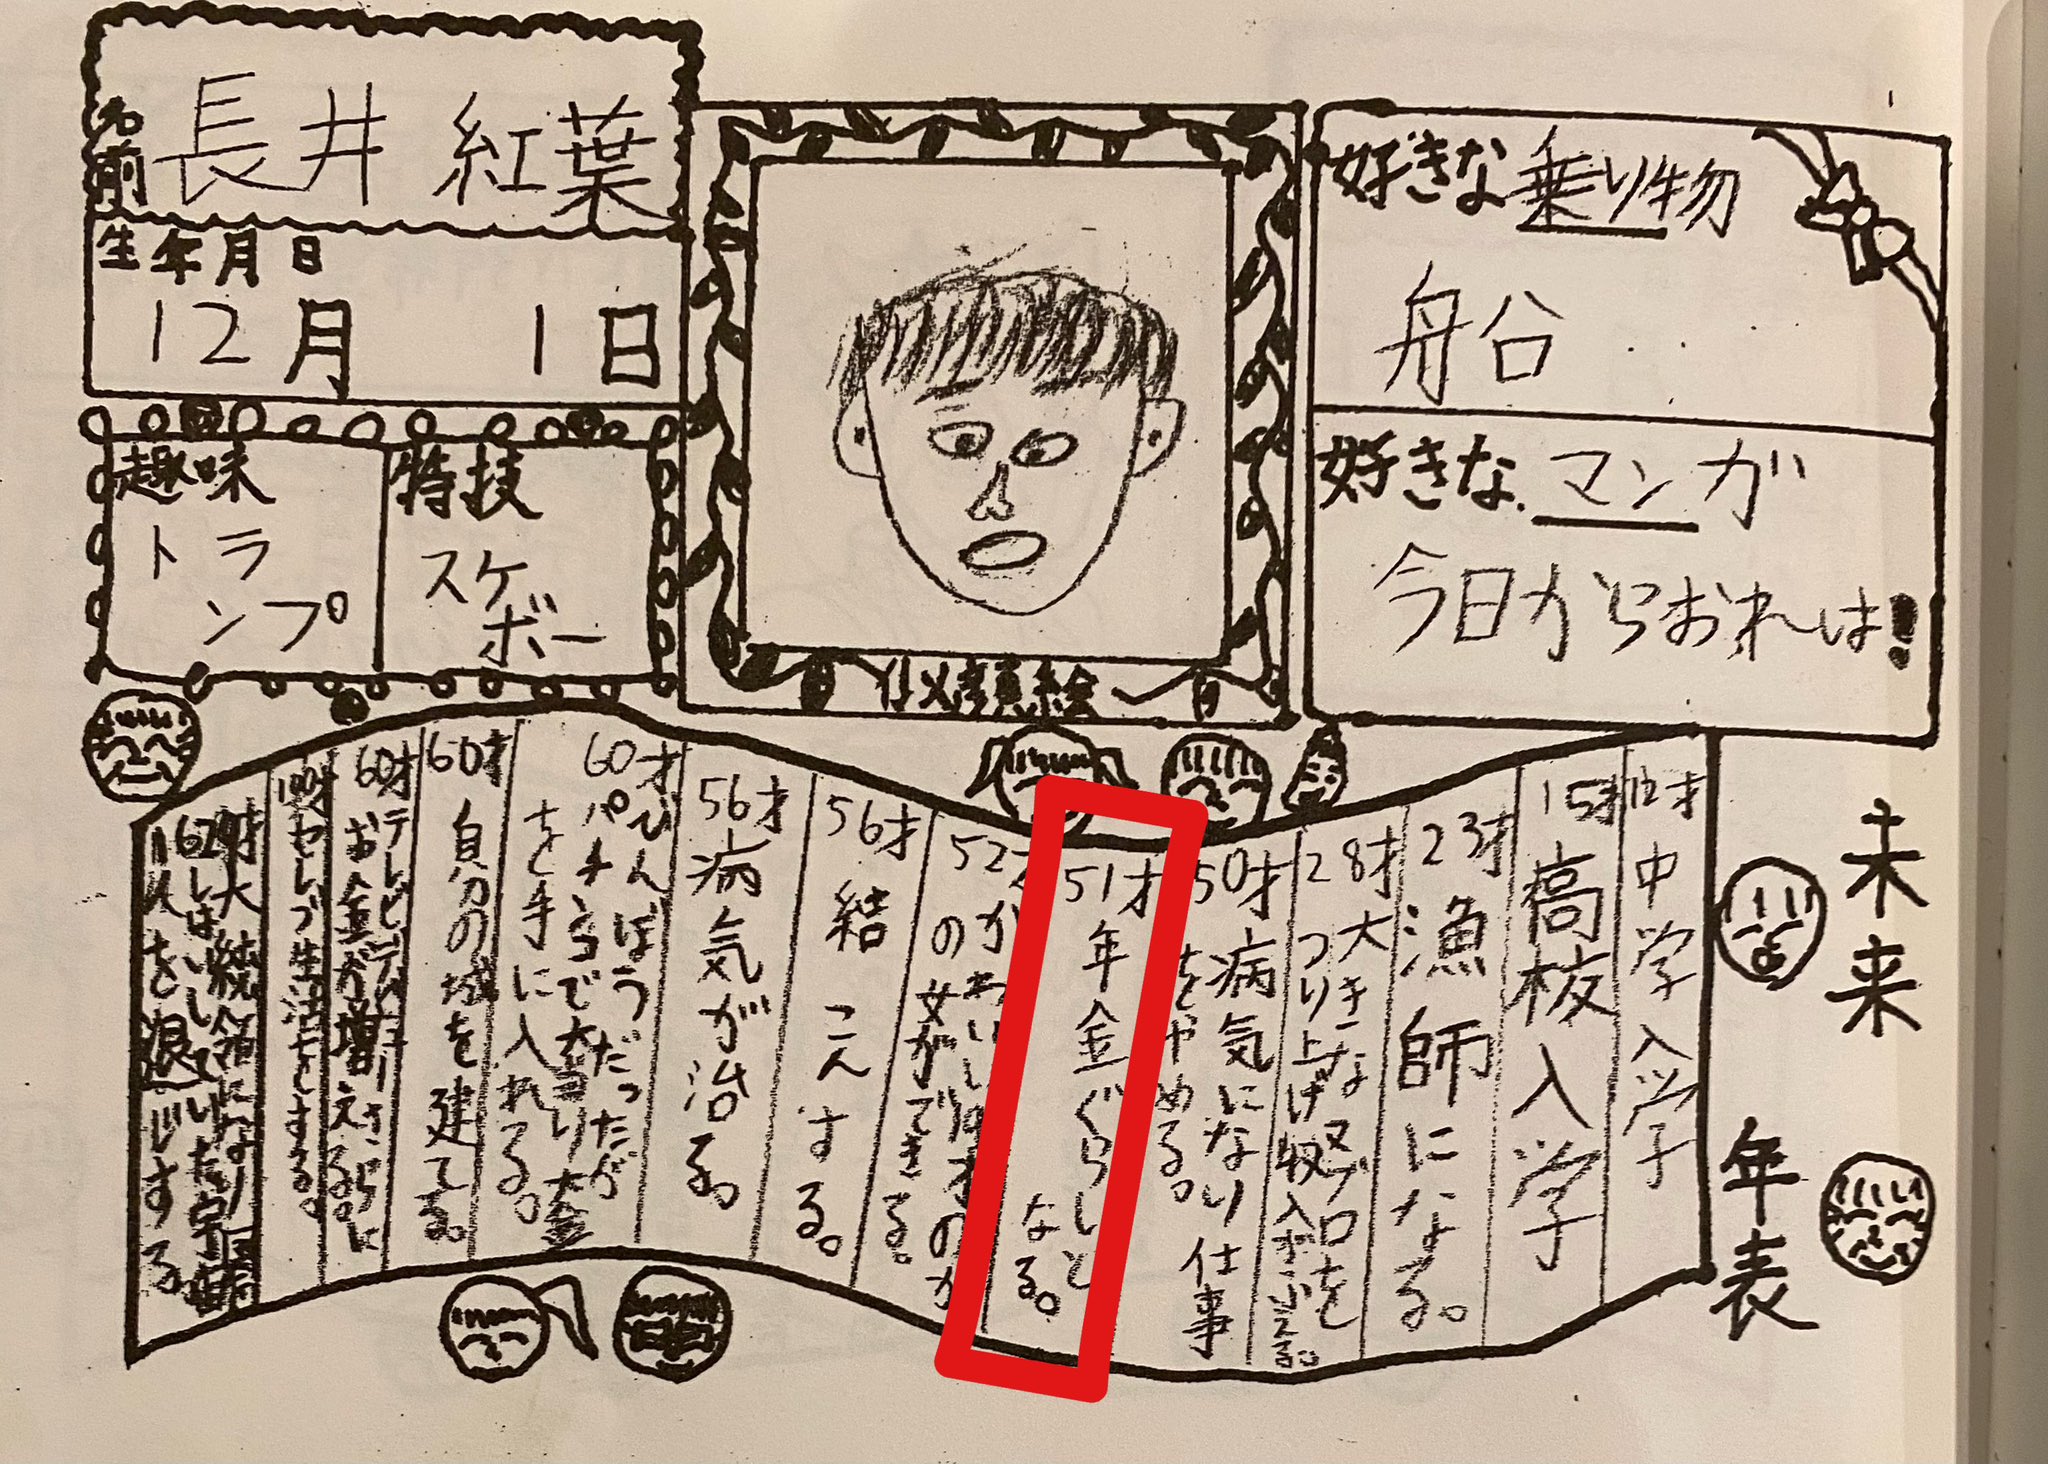 名前
長井 紅葉
生年月日
12月 1日
趣味
トラ
ンプ
特技
スケ
ボー
似顔絵
好きな乗り物
船
好きなマンガ
今日からおれは!
未来 年表
12才 中学入学
15才 高校入学
23才 漁師になる。
28才 大きなマグロを
つり上げ収入がふえる。
50才 病気になり仕事
をやめる。
51才 年金ぐらしと
なる。
52才 かわいい
のか
の女ができる。
56才 結こんする。
56才 病気が治る。
60才 びんぼうだったが
パチンコで大当り大金
を手に入れる。
60才 自分の城を建てる。
60才 テレビデビューしさらに
お金が増える。
100才 セレブ生活をする。
才 大統領になり
しはいしていた宇宙
人を退じする。